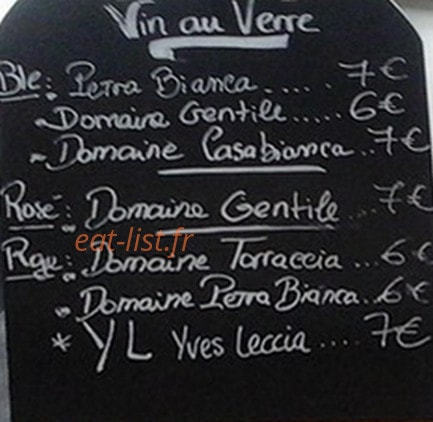 Vin au Verre
Ble: Perra Bianca..... 7€
- Domaine Gentile..... 6€
- Domaine Casabianca.. 7€
Rosé: Domaine Gentile... 7€
eat-list.fr
Rge: Domaine Torraccia... 6€
- Domaine Perra Bianca.. 6€
* YL Yves Leccia.... 7€